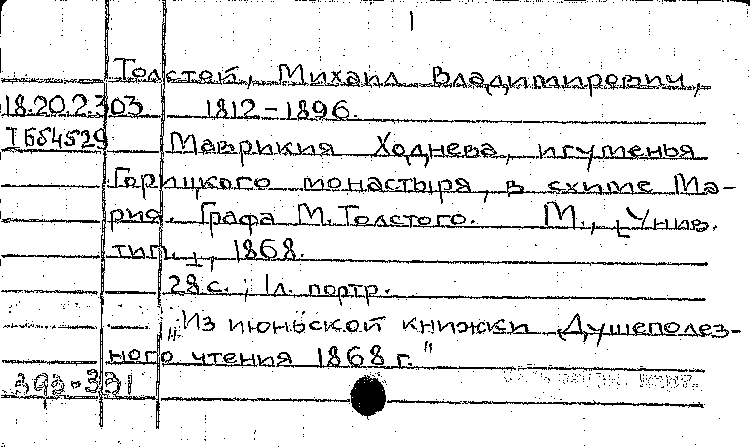 1
Толстой, Михаил Владимирович,
18.20.2.303 1812-1896.
Маврикия Ходнева, игуменья
Горицкого монастыря, в схиме Ма-
рия. Графа М. Толстого. М., [Унив.
тип.], 1868.
28 с.; 1 л. портр.
„Из июньской книжки Душеполез-
ного чтения 1868 г."